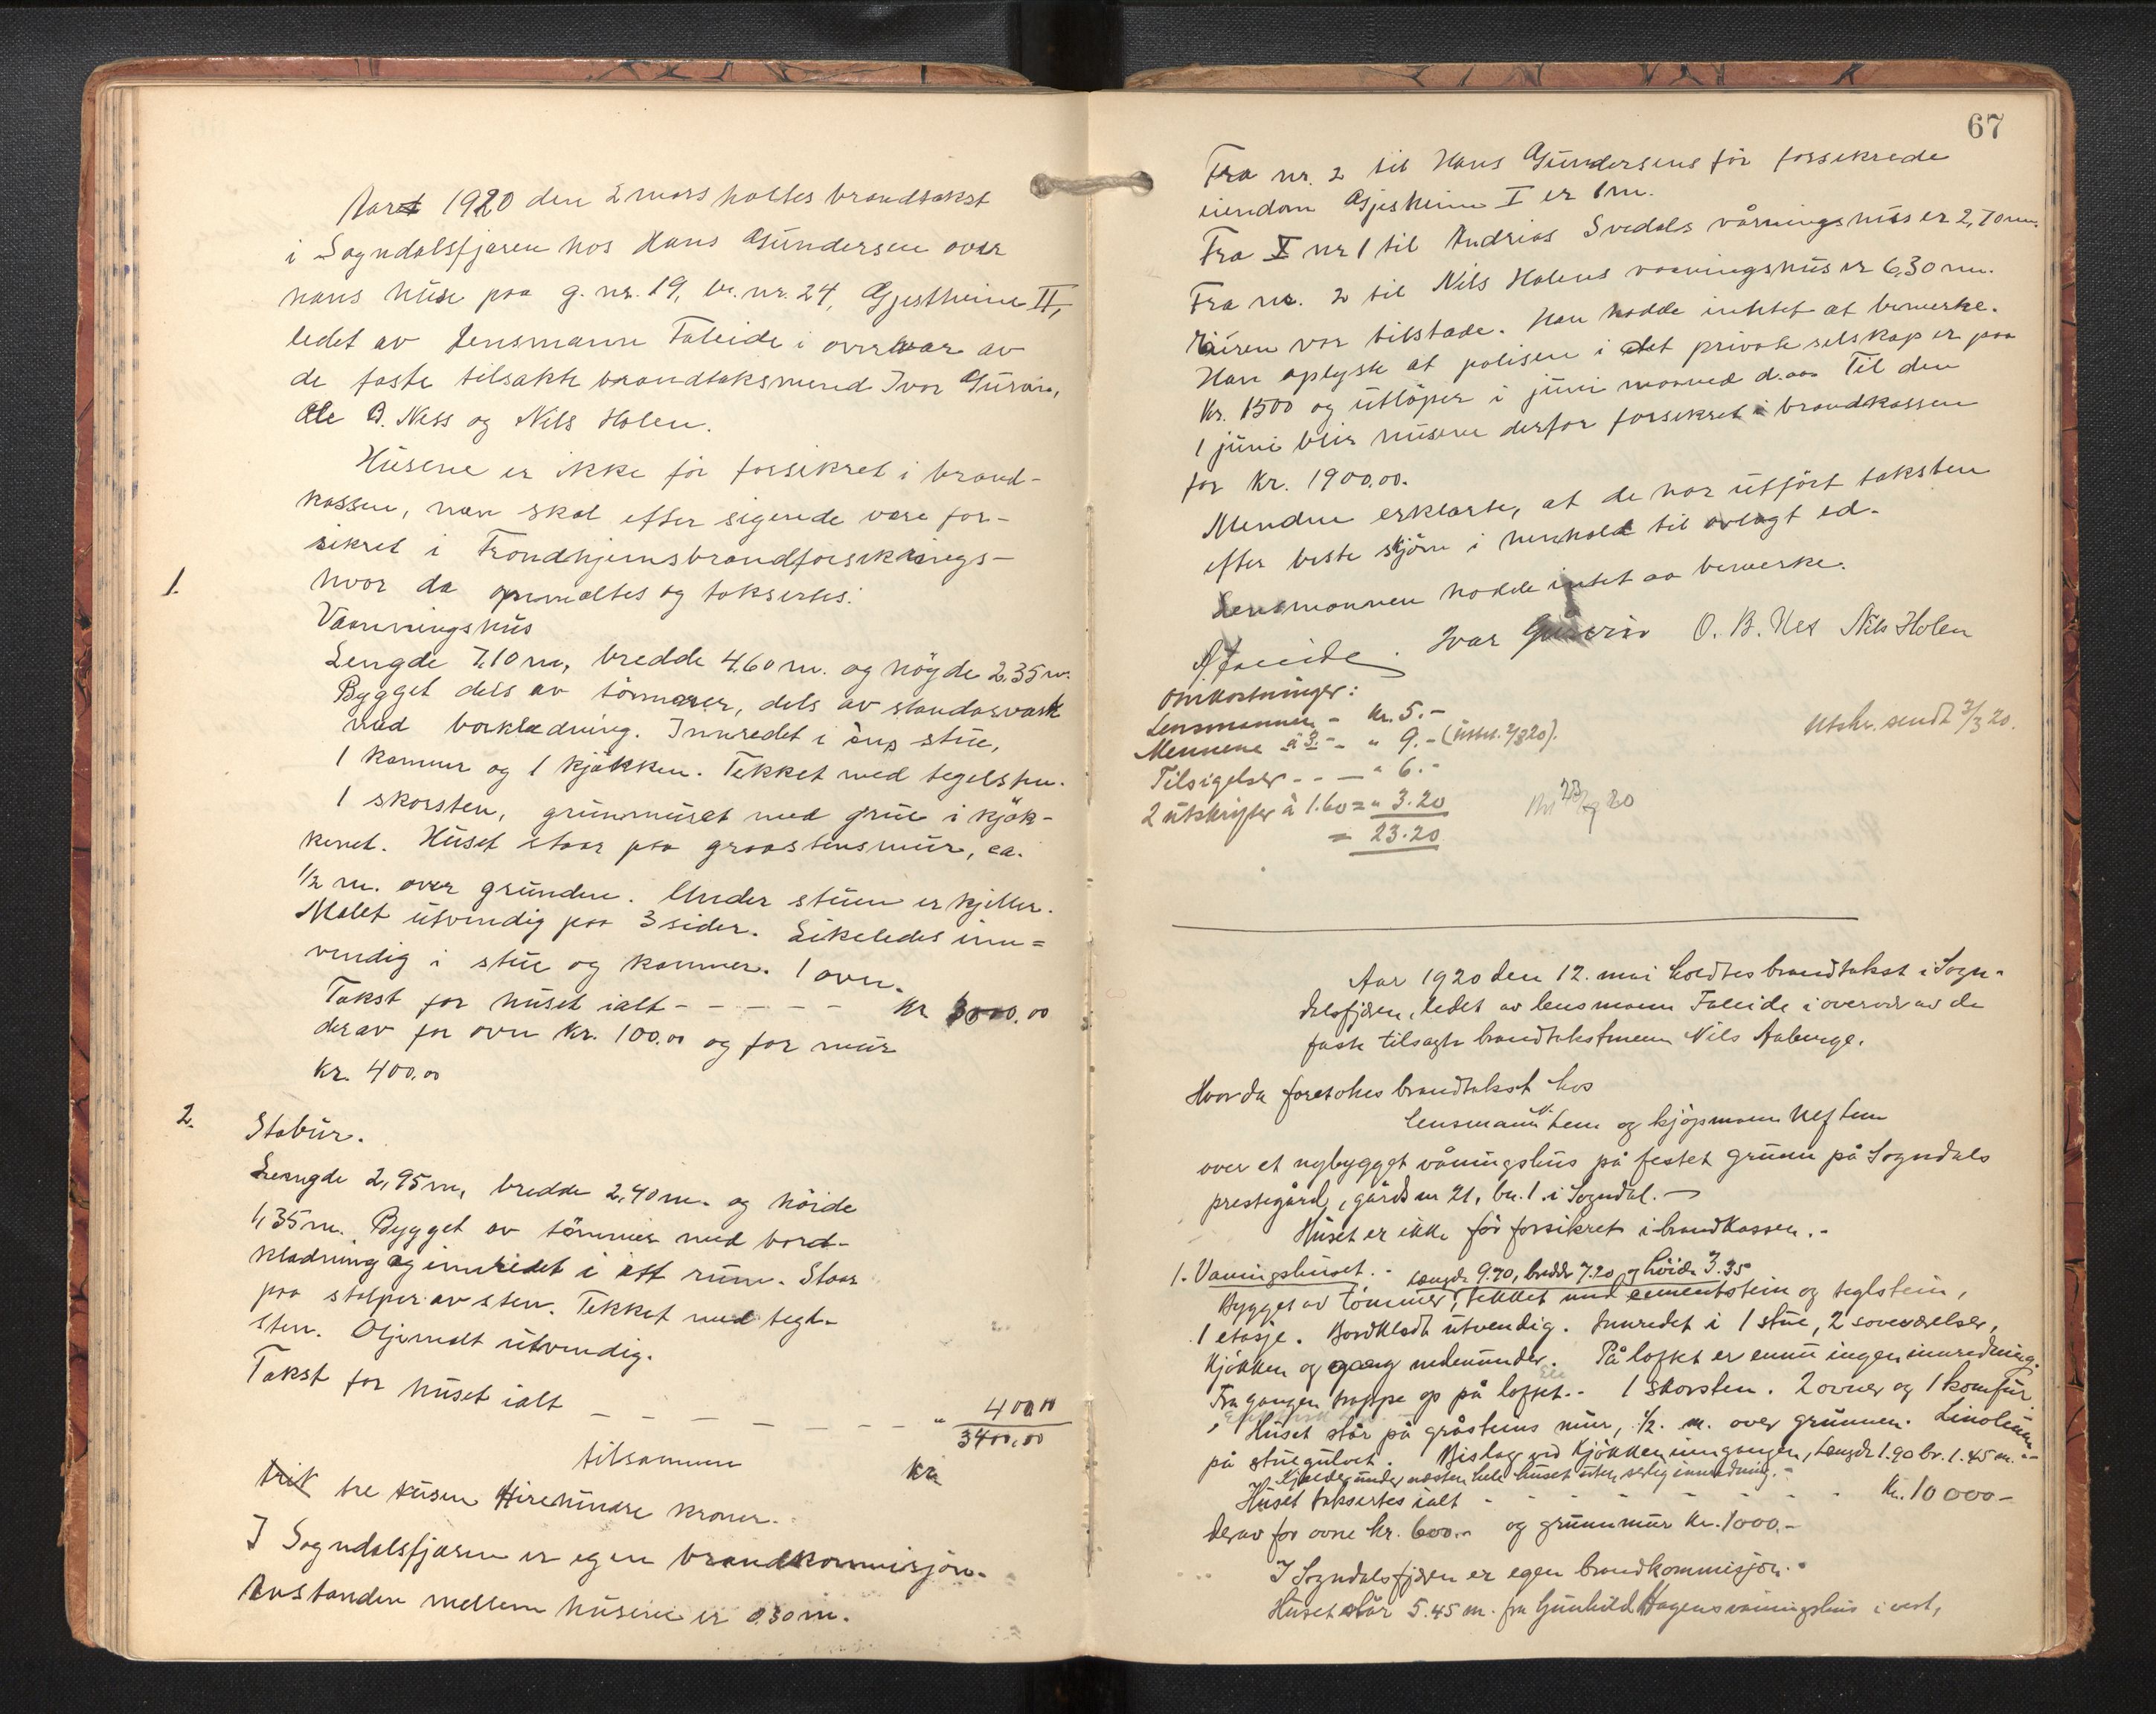 Aar 1920 den 2 mars holtes brandtakst
i Sogndalsfjæren hos Hans Gundersen over
hans huse paa g.nr. 19, br.nr. 24, Gjestheim II,
ledet av lensmann Faleide i overvær av
de faste tilsakte brandtaksmend Ivar
Ole B. Ness og Nils Holen.
Husene er ikke før forsikret i brand-
kassen, men skal efter sigende være for-
sikret i Trondhjemsbrandforsikrings-
hvor da opmaaltes og taksertes:
1.
Vaaningshus
Lengde 7,10 m, bredde 4,60 m. og høyde 2,35 m.
Bygget dels av tømmer, dels av
med borkledning. Innredet i stue,
1 kammer og 1 kjøkken. Tekket med tegelsten.
1 skorsten, grunnmuret med grue i kjøk-
kenet. Huset staar paa graastensmur, ca.
1/2 m. over grunden. Under stuen er kjeller.
Malet utvendig paa 3 sider. Likeledes inn=
vendig i stue og kammer. 1 ovn.
Takst for huset ialt - - - - - - Kr 3000.00
derav for ovn Kr. 100.00 og for mur
Kr. 400.00
2.
Stabur.
Lengde 2,95 m, bredde 2,40 m. og høide
1,35 m. Bygget av tømmer med bord-
kledning og innredet i ett rum. Staar
paa stolper av sten. Tekket med tegl-
sten. Oljemalt utvendig.
Takst for huset ialt - - - - - - - " 400.00
tilsammen Kr 3400.00
tre tusen firehundre kroner.
I Sogndalsfjæren er egen brandkommisjon.
Avstanden mellem husene er 0,30 m.
67
Fra nr. 2 til Hans Gundersens før forsekrede
eiendom Gjestheim I er 1 m.
Fra nr 1 til Andrias Svedals våningshus er 2,70 m.
Fra nr. 2 til Nils Holens vaaningshus er 6,30 m.
Eieren var tilstade. Han hadde inktet at bemerke.
Han oplyste at polisen i det private selskap er paa
Kr. 1500 og utløper i juni maaned d.aa. Til den
1 juni blir husene derfor forsikret i brandkassen
for Kr. 1900.00.
Mendene erklærte, at de har utført taksten
efter beste skjøn i henhold til avlagt ed.
Lensmannen hadde intet aa bemerke.
A Faleide. Ivar O. B. Nes Nils Holen
Omkostninger:
Lensmannen - Kr. 5.-
Mennene á 3.- - " 9.- 2/3 20).
Utskr. sendt 3/3 20.
Tilsigelser - - - " 6.-
2 utskrifter à 1.60 = " 3.20
= 23.20
Aar 1920 den 12. mai holdtes brandtakst i Sogn-
dalsfjæren, ledet av lensmann Faleide i overvær av de
faste tilsagte brandtakstmenn Nils Aaberge.
Hvor da foretokes brandtakst hos
lensmann Lem og kjøpmann Lem
over et nybygget våningshus på festet grunn på Sogndals
prestegård, gårds nr 21, br. 1. i Sogndal. -
Huset er ikke før forsikret i brandkassen. -
1. Vaningshuset. - Længde 9.70, bredde 7.20 og høide 3.35
Bygget av tømmer, tekket med cementstein og teglstein,
1 etasje. Bordkledt utvendig. Innredet i 1 stue, 2 soveværelser,
kjøkken og gang nedenunder. På loftet er ennu ingen innredning.
Fra gangen trappe op på loftet. - 1 skorsten. 2 ovner og 1 komfur.
Huset står på gråsteins mur, 1/2. m. over grunnen. Linoleum
på stuegulvet. Bislag ved kjøkkeninngangen, længde 1.90 br. 1.45 m. -
Kjelder under næsten hele huset uten særlig innredning. -
Huset taksertes ialt - - - - - - - - Kr. 10000-
derav for ovne kr. 600.- og grunnmur kr. 1000.-
I Sogndalsfjæren er egen brandkommisjon. -
Huset står 5.45 m. fra Gunhild Hagens våningshus i vest,